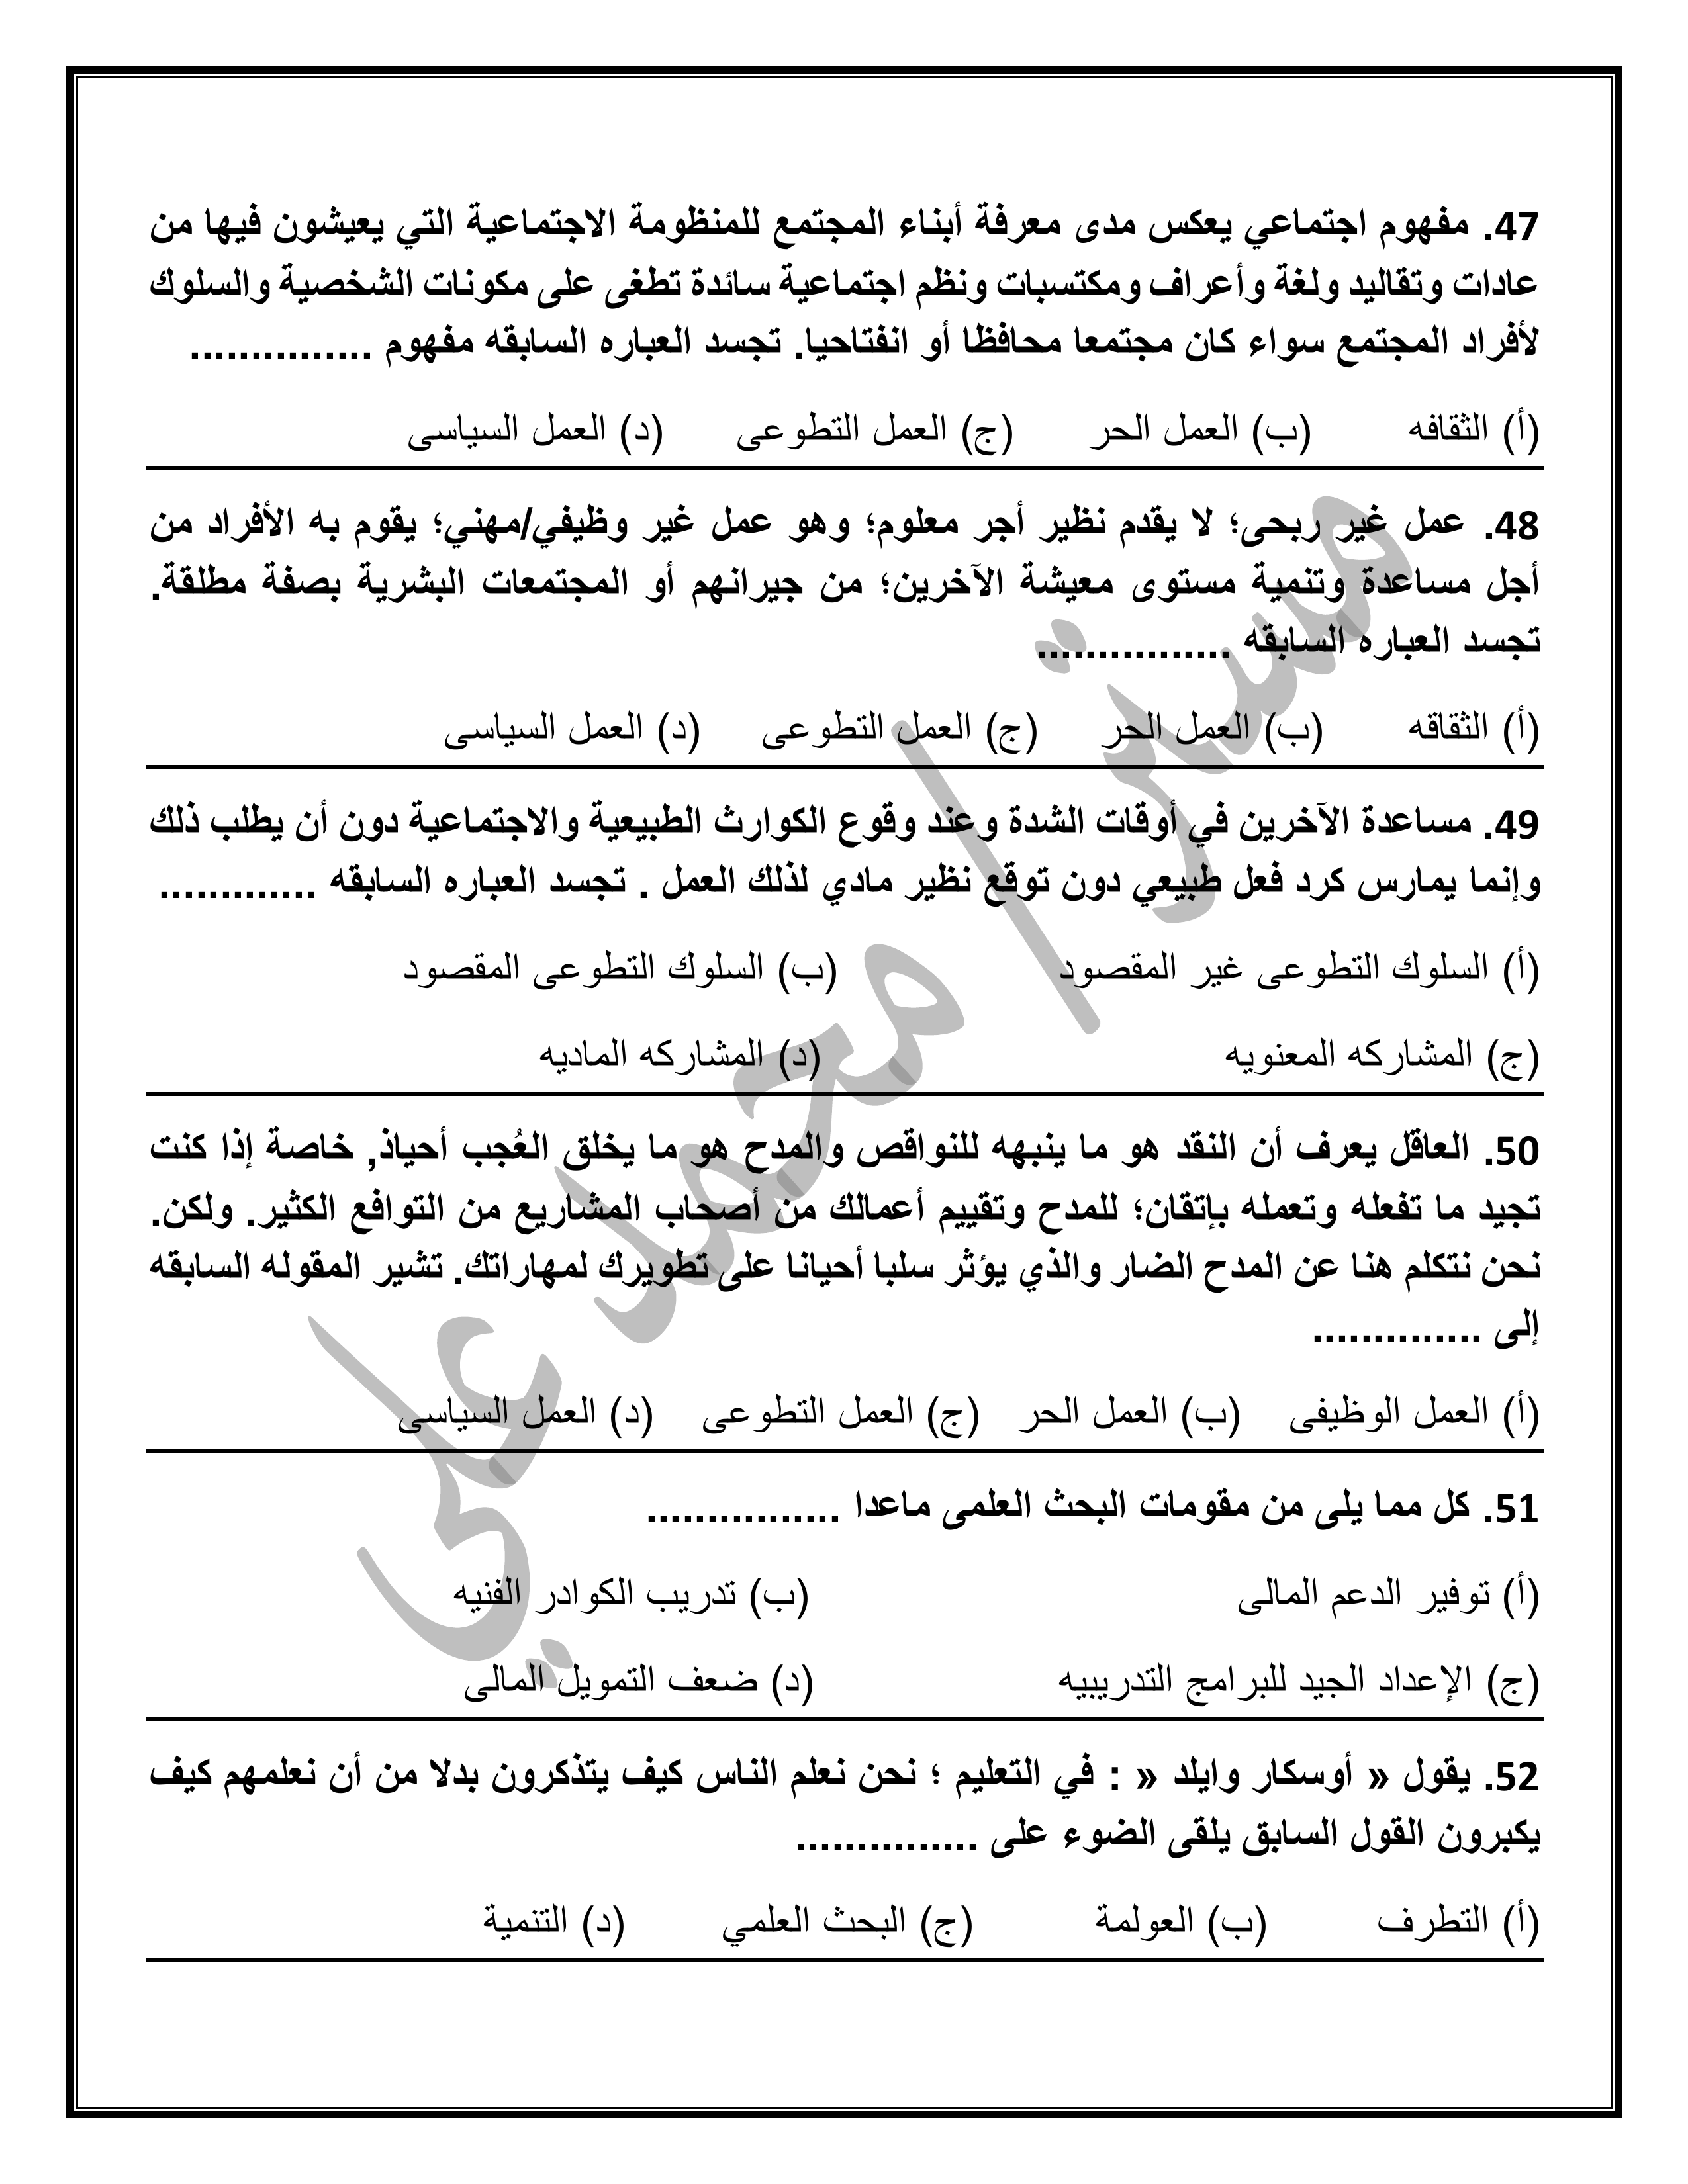 47. مفهوم اجتماعي يعكس مدى معرفة أبناء المجتمع للمنظومة الاجتماعية التي يعيشون فيها من
عادات وتقاليد ولغة وأعراف ومكتسبات ونظم اجتماعية سائدة تطغى على مكونات الشخصية والسلوك
لأفراد المجتمع سواء كان مجتمعا محافظا أو انفتاحيا. تجسد العباره السابقه مفهوم ...............
(أ) الثقافه (ب) العمل الحر (ج) العمل التطوعى (د) العمل السياسى
48. عمل غير ربحى؛ لا يقدم نظير أجر معلوم؛ وهو عمل غير وظيفي/مهني؛ يقوم به الأفراد من
أجل مساعدة وتنمية مستوى معيشة الآخرين؛ من جيرانهم أو المجتمعات البشرية بصفة مطلقة.
تجسد العباره السابقه ................
(أ) الثقاقه (ب) العمل الحر (ج) العمل التطوعى (د) العمل السياسى
49. مساعدة الآخرين في أوقات الشدة وعند وقوع الكوارث الطبيعية والاجتماعية دون أن يطلب ذلك
وإنما يمارس كرد فعل طبيعي دون توقع نظير مادي لذلك العمل . تجسد العباره السابقه .............
(أ) السلوك التطوعى غير المقصود (ب) السلوك التطوعى المقصود
(ج) المشاركه المعنويه (د) المشاركه الماديه
50. العاقل يعرف أن النقد هو ما ينبهه للنواقص والمدح هو ما يخلق العُجب أحياذ, خاصة إذا كنت
تجيد ما تفعله وتعمله بإتقان؛ للمدح وتقييم أعمالك من أصحاب المشاريع من التوافع الكثير. ولكن.
نحن نتكلم هنا عن المدح الضار والذي يؤثر سلبا أحيانا على تطويرك لمهاراتك. تشير المقوله السابقه
إلى ..............
(أ) العمل الوظيفى (ب) العمل الحر (ج) العمل التطوعى (د) العمل السياسى
51. كل مما يلى من مقومات البحث العلمى ماعدا ................
(أ) توفير الدعم المالى (ب) تدريب الكوادر الفنيه
(ج) الإعداد الجيد للبرامج التدريبيه (د) ضعف التمويل المالى
52. يقول « أوسكار وايلد « : في التعليم ؛ نحن نعلم الناس كيف يتذكرون بدلا من أن نعلمهم كيف
يكبرون القول السابق يلقى الضوء على ...............
(أ) التطرف (ب) العولمة (ج) البحث العلمي (د) التنمية
مستر/محمد علي